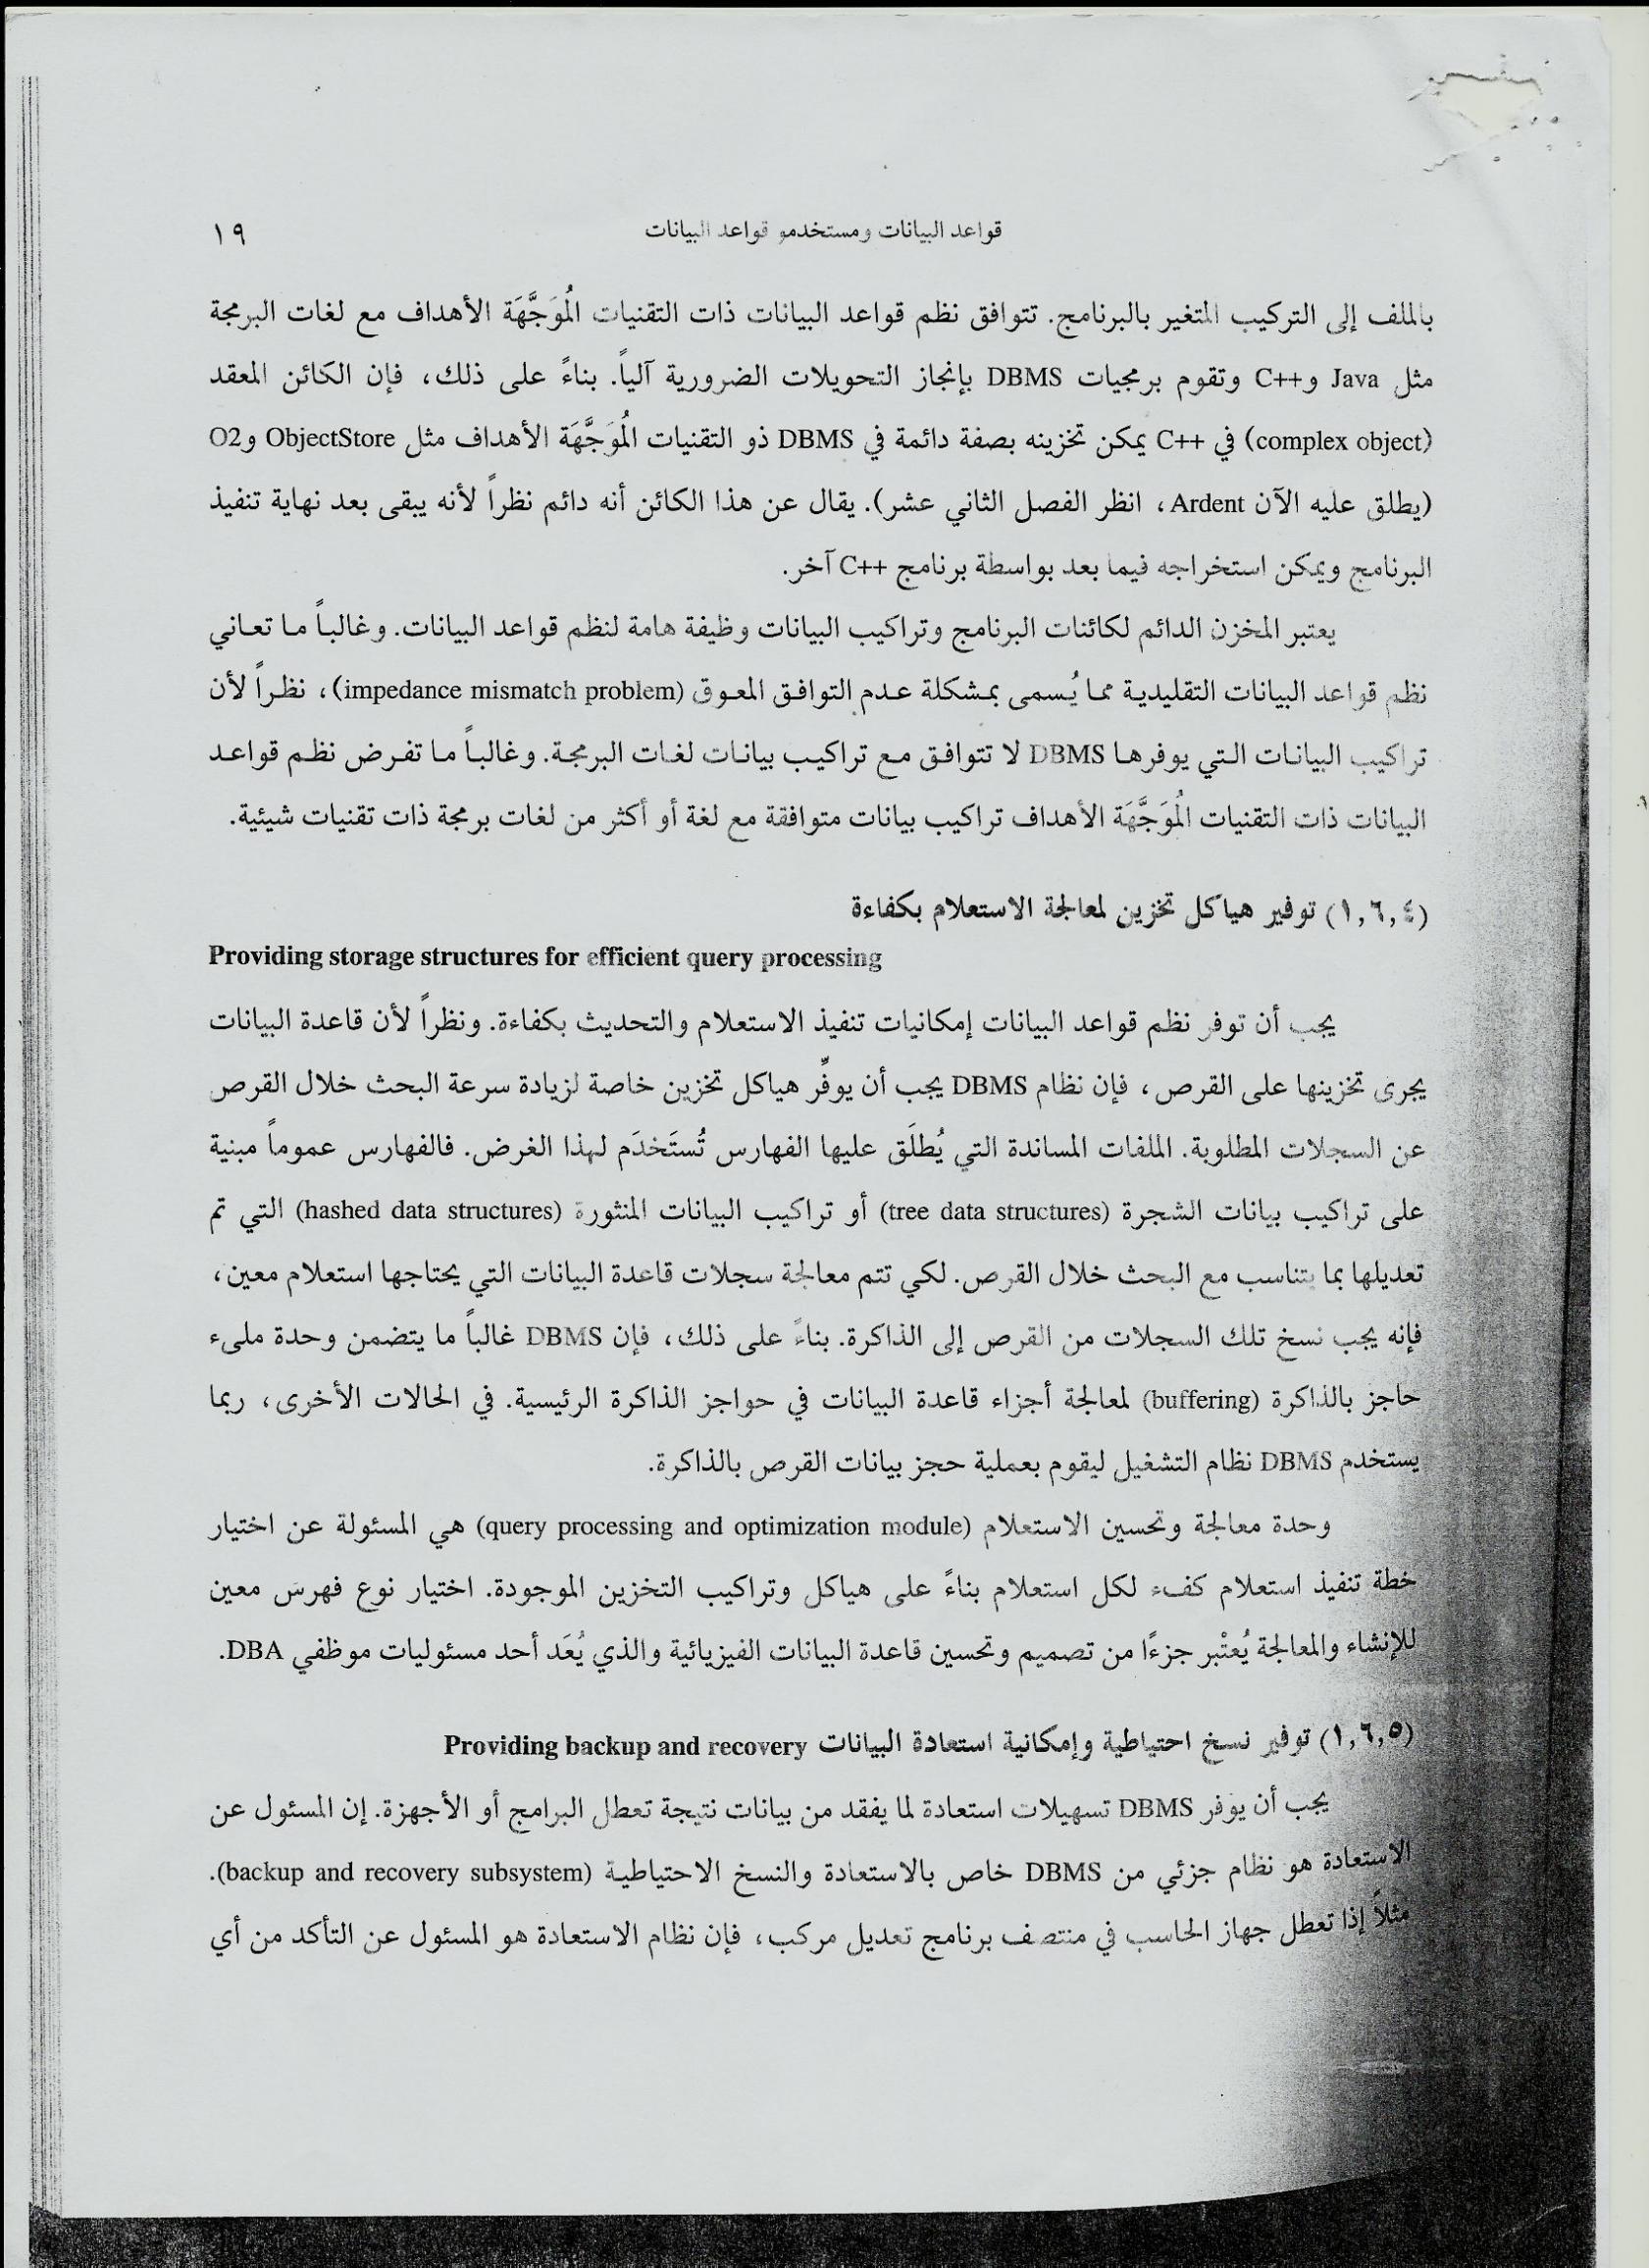 قواعد البيانات ومستخدمو قواعد البيانات ١٩
بالملف إلى التركيب المتغير بالبرنامج. تتوافق نظم قواعد البيانات ذات التقنيات المُوَجَّهَة الأهداف مع لغات البرمجة
مثل Java و++C وتقوم برمجيات DBMS بإنجاز التحويلات الضرورية آلياً. بناءً على ذلك، فإن الكائن المعقد
(complex object) في ++C يمكن تخزينه بصفة دائمة في DBMS ذو التقنيات المُوَجَّهَة الأهداف مثل ObjectStore وO2
(يطلق عليه الآن Ardent، انظر الفصل الثاني عشر). يقال عن هذا الكائن أنه دائم نظراً لأنه يبقى بعد نهاية تنفيذ
البرنامج ويمكن استخراجه فيما بعد بواسطة برنامج ++C آخر.
يعتبر المخزن الدائم لكائنات البرنامج وتراكيب البيانات وظيفة هامة لنظم قواعد البيانات. وغالباً ما تعاني
نظم قواعد البيانات التقليدية مما يُسمى بمشكلة عدم التوافق المعوق (impedance mismatch problem)، نظراً لأن
تراكيب البيانات التي يوفرها DBMS لا تتوافق مع تراكيب بيانات لغات البرمجة. وغالباً ما تفرض نظم قواعد
البيانات ذات التقنيات المُوَجَّهَة الأهداف تراكيب بيانات متوافقة مع لغة أو أكثر من لغات برمجة ذات تقنيات شيئية.
(١,٦,٤) توفير هياكل تخزين لمعالجة الاستعلام بكفاءة
Providing storage structures for efficient query processing
يجب أن توفر نظم قواعد البيانات إمكانيات تنفيذ الاستعلام والتحديث بكفاءة. ونظراً لأن قاعدة البيانات
يجرى تخزينها على القرص، فإن نظام DBMS يجب أن يوفِّر هياكل تخزين خاصة لزيادة سرعة البحث خلال القرص
عن السجلات المطلوبة. الملفات المساندة التي يُطلَق عليها الفهارس تُستَخدَم لهذا الغرض. فالفهارس عموماً مبنية
على تراكيب بيانات الشجرة (tree data structures) أو تراكيب البيانات المنثورة (hashed data structures) التي تم
تعديلها بما يتناسب مع البحث خلال القرص. لكي تتم معالجة سجلات قاعدة البيانات التي يحتاجها استعلام معين،
فإنه يجب نسخ تلك السجلات من القرص إلى الذاكرة. بناءً على ذلك، فإن DBMS غالباً ما يتضمن وحدة ملىء
حاجز بالذاكرة (buffering) لمعالجة أجزاء قاعدة البيانات في حواجز الذاكرة الرئيسية. في الحالات الأخرى، ربما
يستخدم DBMS نظام التشغيل ليقوم بعملية حجز بيانات القرص بالذاكرة.
وحدة معالجة وتحسين الاستعلام (query processing and optimization module) هي المسئولة عن اختيار
خطة تنفيذ استعلام كفء لكل استعلام بناءً على هياكل وتراكيب التخزين الموجودة. اختيار نوع فهرس معين
للإنشاء والمعالجة يُعتْبر جزءًا من تصميم وتحسين قاعدة البيانات الفيزيائية والذي يُعَد أحد مسئوليات موظفي DBA.
(١,٦,٥) توفير نسخ احتياطية وإمكانية استعادة البيانات Providing backup and recovery
يجب أن يوفر DBMS تسهيلات استعادة لما يفقد من بيانات نتيجة تعطل البرامج أو الأجهزة. إن المسئول عن
الاستعادة هو نظام جزئي من DBMS خاص بالاستعادة والنسخ الاحتياطية (backup and recovery subsystem).
مثلاً إذا تعطل جهاز الحاسب في منتصف برنامج تعديل مركب، فإن نظام الاستعادة هو المسئول عن التأكد من أي